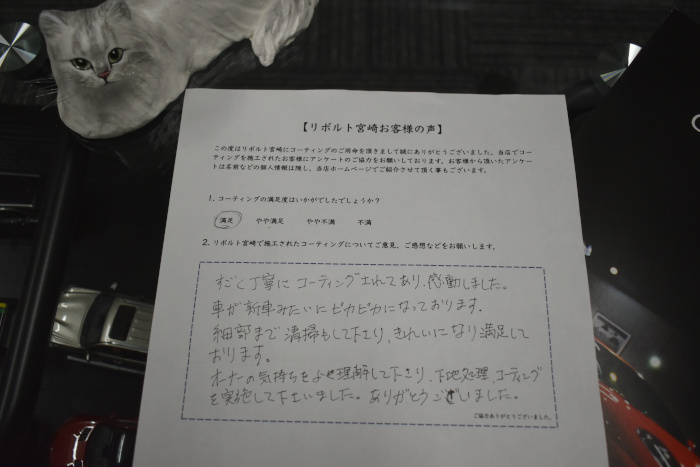 【リボルト宮崎お客様の声】
この度はリボルト宮崎にコーティングのご用命を頂きまして誠にありがとうございました。当店でコー
ティングを施工されたお客様にアンケートのご協力をお願いしております。お客様から頂いたアンケー
トは名前などの個人情報は隠し、当店ホームページでご紹介させて頂く事もございます。
1. コーティングの満足度はいかがでしたでしょうか？
満足 やや満足 やや不満 不満
2. リボルト宮崎で施工されたコーティングについてご意見、ご感想などをお願いします。
すごく丁寧にコーティングされてあり、感動しました。
車が新車みたいにピカピカになっております。
細部まで清掃もして下さり、きれいになり満足して
おります。
オーナーの気持ちをよく理解して下さり、下地処理、コーティング
を実施して下さいました。ありがとうございました。
ご協力ありがとうございました。